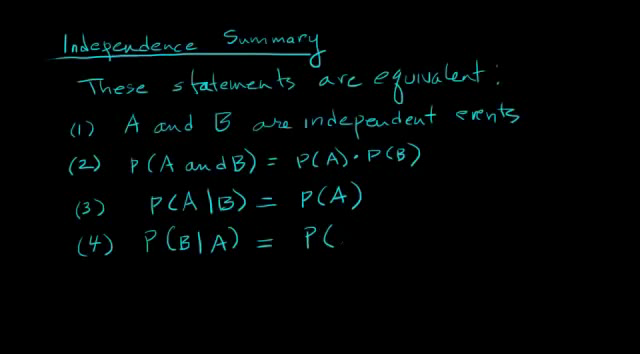 Independence Summary
These statements are equivalent:
(1) A and B are independent events
(2) P(A and B) = P(A) • P(B)
(3) P(A|B) = P(A)
(4) P(B|A) = P(